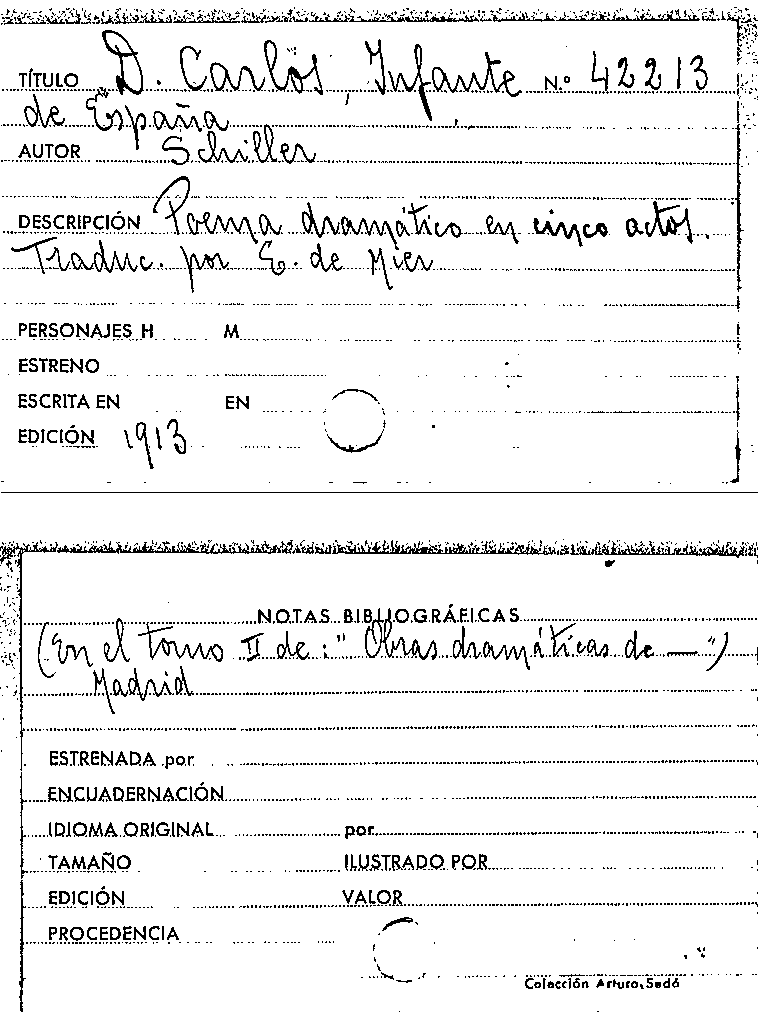 TÍTULO D. Carlos, Infante N.º 42213
de España
AUTOR Schiller
DESCRIPCIÓN Poema dramático en cinco actos.
Traduc. por E. de Mier
PERSONAJES H M
ESTRENO
ESCRITA EN EN
EDICIÓN 1913
NOTAS BIBLIOGRÁFICAS
(En el tomo II de: "Obras dramáticas de —")
Madrid
ESTRENADA por
ENCUADERNACIÓN
IDIOMA ORIGINAL por
TAMAÑO ILUSTRADO POR
EDICIÓN VALOR
PROCEDENCIA
Colección Arturo Sedó